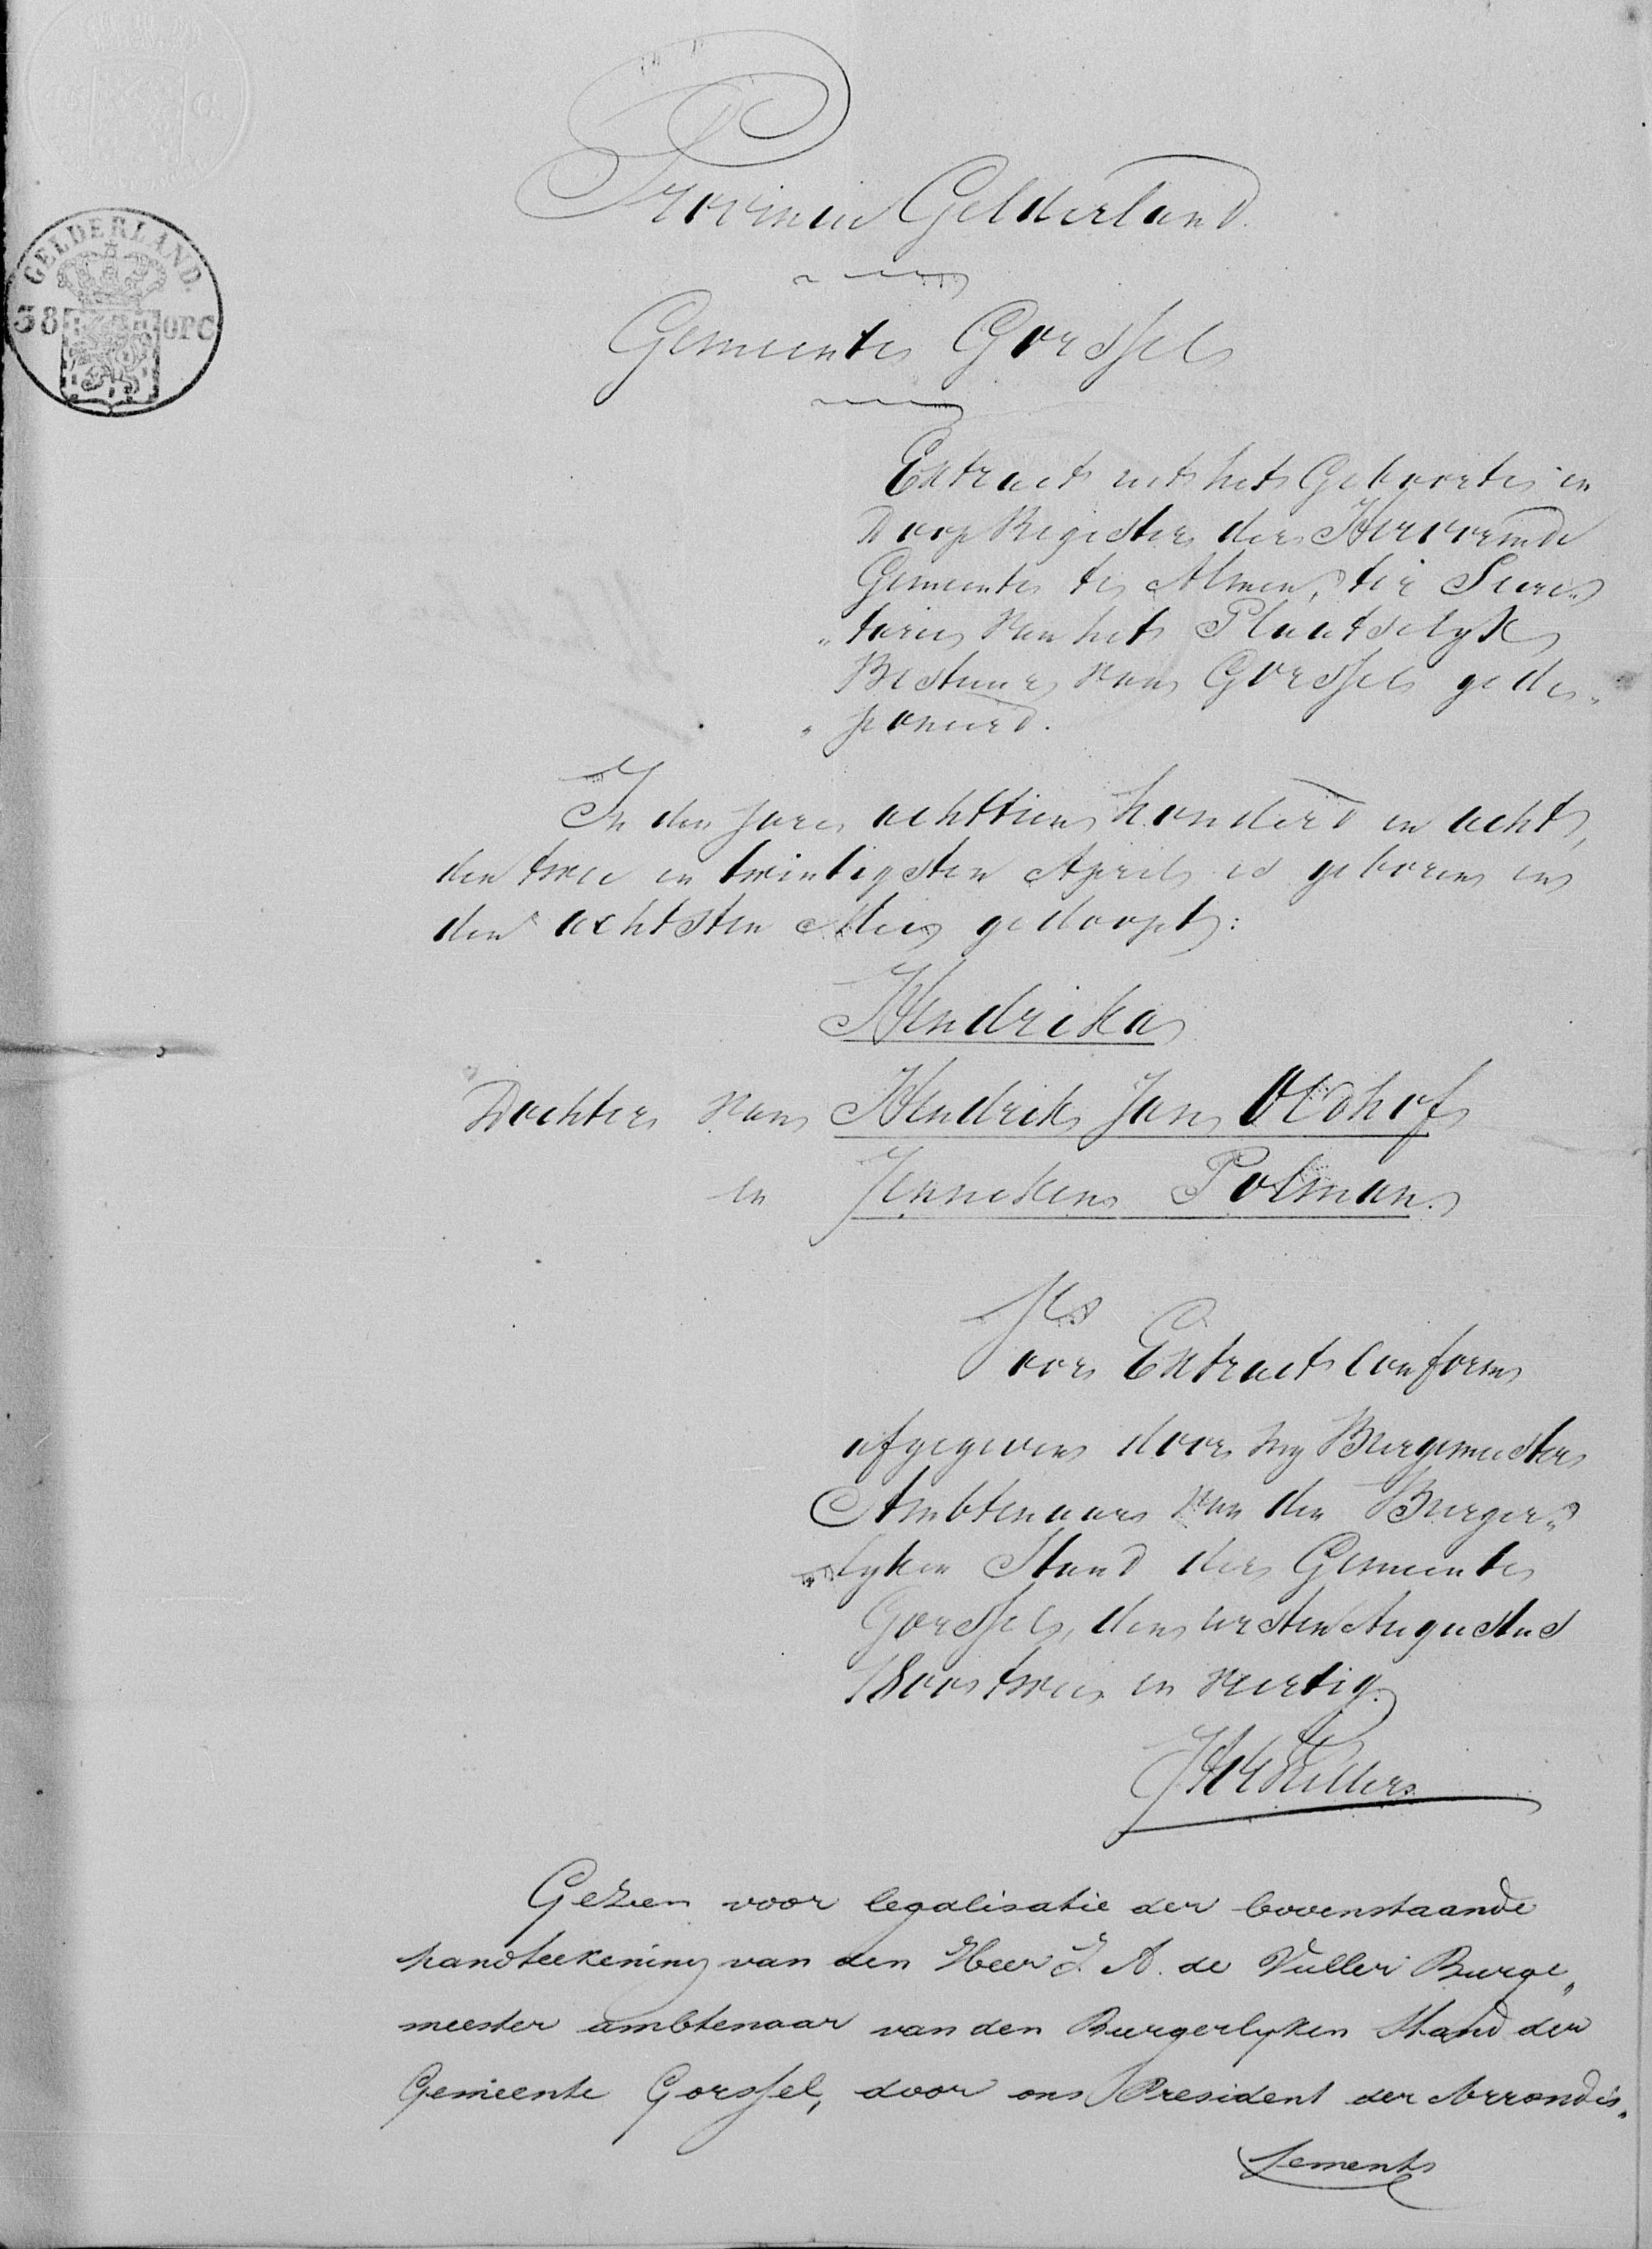 GELDERLAND.
38 OPC
Provincie Gelderland.
Gemeente Gorssel
Extract uit het Geboorte en
Doop Register der Hervormde
Gemeente te Almen, ter Secre„
„tarie van het Plaatselyk
Bestuur van Gorssel gede„
„poneerd.
In den jare achttien honderd en acht,
den twee en twintigsten April is geboren en
den achtsten Mei gedoopt:
Hendrika
Dochter van Hendrik Jan Oldhof
en Jenneken Polman.
Voor Extract Conform
afgegeven door my Burgemeester
Ambtenaar van den Burger„
„lyken Stand der Gemeente
Gorssel, den eersten Augustus
1800 twee en veertig.
Gezien voor legalisatie der bovenstaande
handteekening van den Heer J. A. de Vuller Burge„
meester ambtenaar van den Burgerlyken Stand der
Gemeente Gorssel, door ons President der Arrondis„
sements